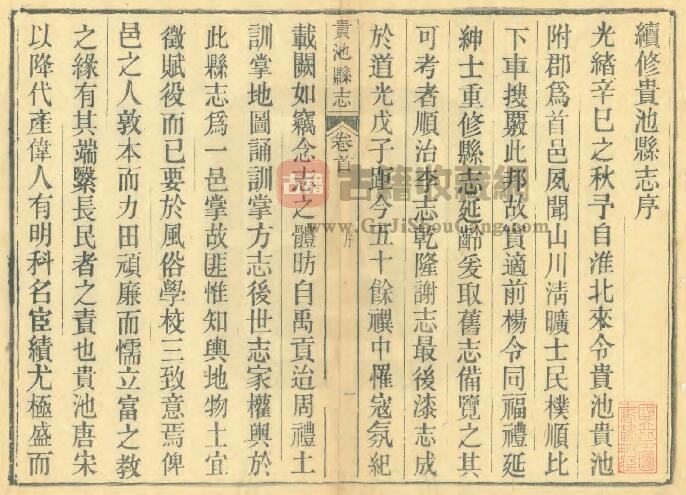 續修貴池縣志序
光緒辛巳之秋予自淮北來令貴池貴池
附郡爲首邑夙聞山川淸曠士民樸順比
下車搜覈此邦故實適前楊令同福禮延
紳士重修縣志延齡爰取舊志備覽之其
可考者順治李志乾隆謝志最後漆志成
於道光戊子距今五十餘禩中罹寇氛紀
貴池縣志 卷首 序 一
載闕如竊念志之體昉自禹貢迨周禮土
訓掌地圖誦訓掌方志後世志家權輿於
此縣志爲一邑掌故匪惟知輿地物土宜
徵賦役而已要於風俗學校三致意焉俾
邑之人敦本而力田頑廉而懦立富之教
之緣有其端繄長民者之責也貴池唐宋
以降代產偉人有明科名宦績尤極盛而
古籍
古籍收藏网
www.GuJiShouCang.com